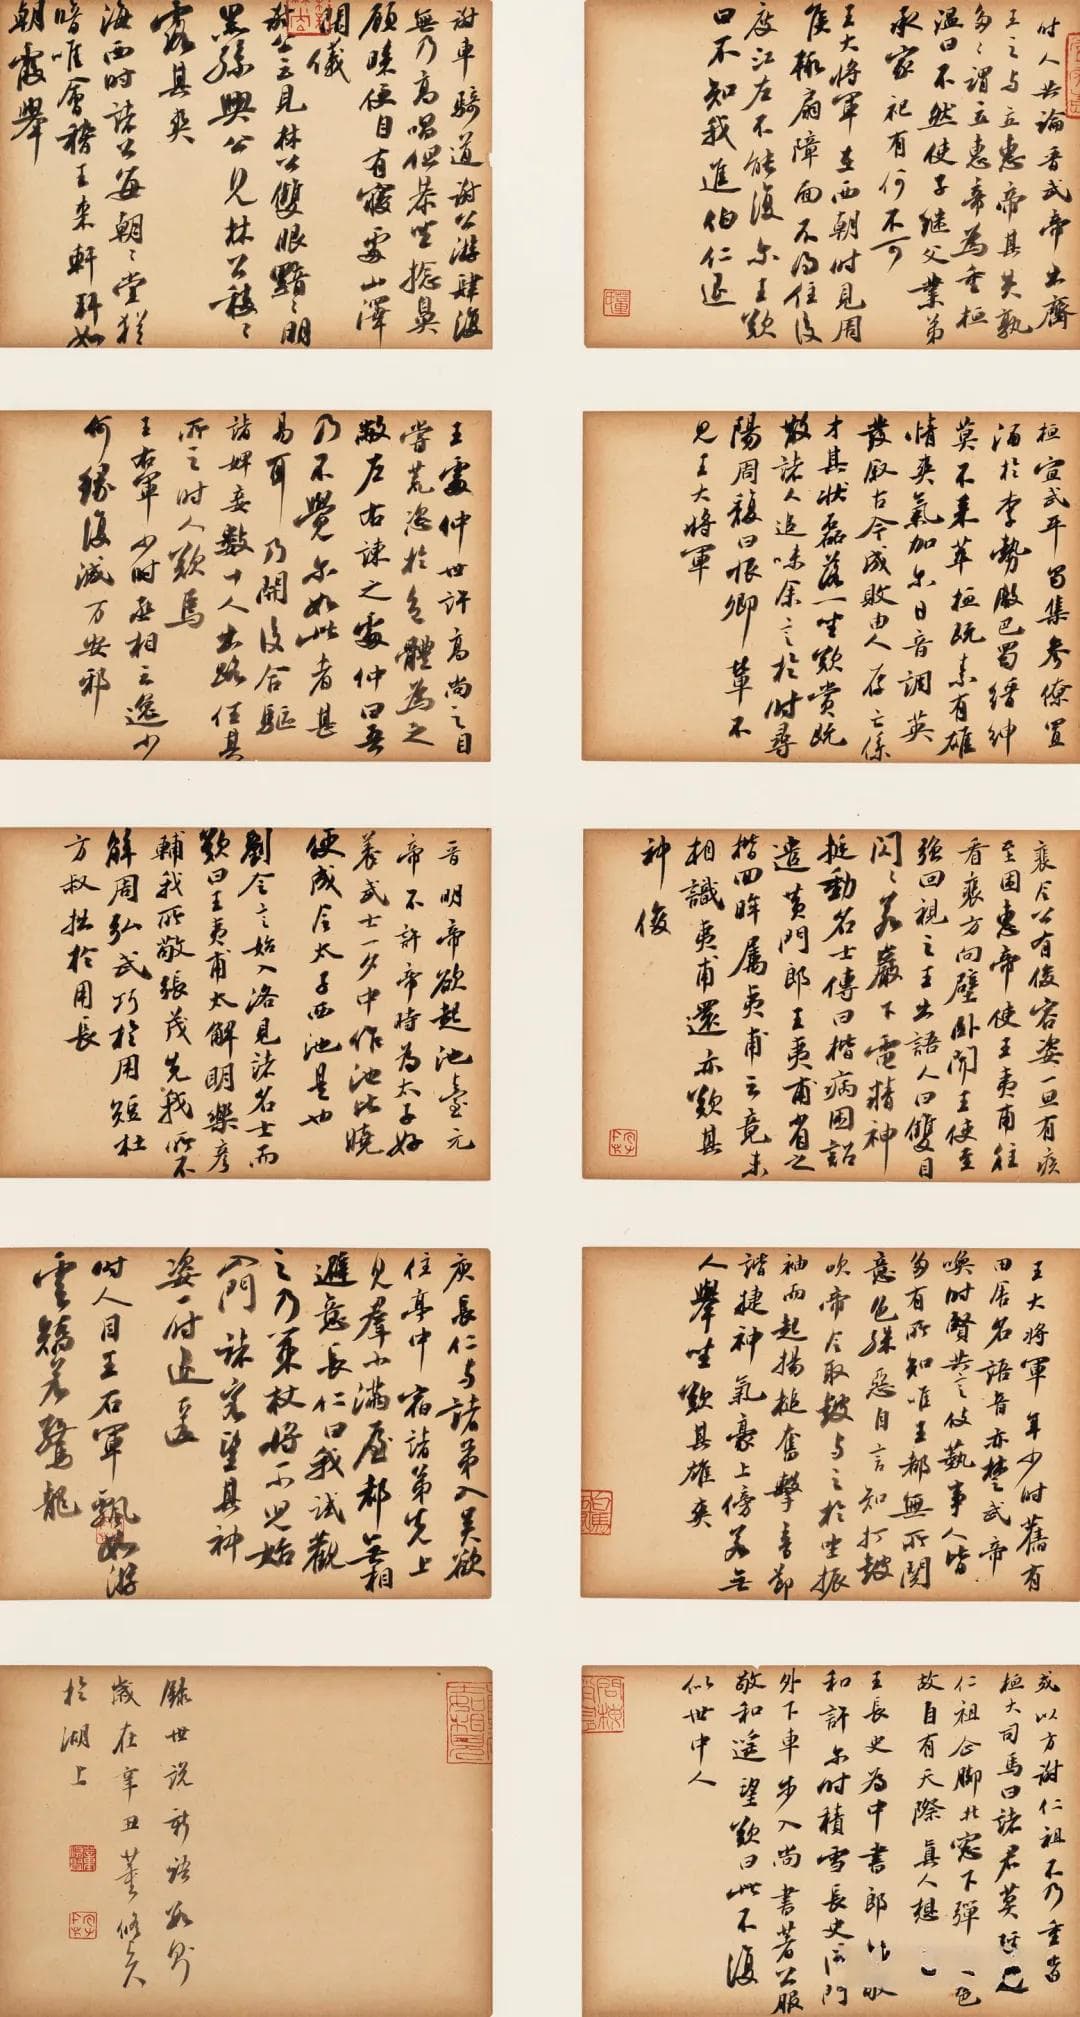 时人共論晋武帝出齊
王之与立惠帝其失孰
多〻謂立惠帝為重桓
温曰不然使子继父業弟
承家祀有何不可
王大将軍在西朝时見周
侯輒扇障面不得住後
度江左不能復尔王歎
曰不知我進伯仁退
謝車騎道謝公游肆復
無乃高唱但恭坐捻鼻
顧睞便自有寢處山澤
間儀
謝公云見林公雙眼黯〻明
黑孫興公見林公稜〻
露其爽
海西时諸公每朝〻堂猶
暗唯會稽王来軒軒如
朝霞舉
桓宣武平蜀集參僚置
酒於李勢殿巴蜀縉紳
莫不来萃桓既素有雄
情爽氣加尔日音調英
發叙古今成敗由人存亡係
才其状磊落一坐歎赏既
散諸人追味余言於时尋
陽周馥曰恨卿輩不
見王大將軍
王處仲世許高尚之目
嘗荒恣於色體為之
敝左右諫之處仲曰吾
乃不覺尔如此者甚
易耳乃開後合驅
諸婢妾數十人出路任其
所之时人歎焉
王右軍少时丞相云逸少
何缘復減万安邪
裴令公有俊容姿一旦有疾
至困惠帝使王夷甫往
看裴方向壁卧聞王使至
强回視之王出語人曰雙目
閃〻若巖下電精神
挺動名士傳曰楷病困詔
遣黄門郎王夷甫省之
楷回眸屬夷甫云竟未
相識夷甫還亦歎其
神俊
晋明帝欲起池臺元
帝不許帝時為太子好
养武士一夕中作池比曉
便成今太子西池是也
劉令言始入洛見諸名士而
歎曰王夷甫太解明樂彦
輔我所敬張茂先我所不
解周弘武巧於用短杜
方叔拙於用長
王大将軍年少时舊有
田舍名語音亦楚武帝
唤时賢共言伎藝事人皆
多有所知唯王都無所関
意色殊惡自言知打鼓
吹帝令取鼓与之於坐振
袖而起揚槌奮擊音節
諧捷神氣豪上傍若無
人舉坐歎其雄爽
庾長仁与諸弟入吴欲
住亭中宿諸弟先上
見羣小滿屋都無相
避意長仁曰我試觀
之乃策杖將一小兒始
入門諸客望其神
姿一时退匿
时人目王右軍飄如游
雲矯若驚龍
或以方謝仁祖不乃重者
桓大司馬曰諸君莫
仁祖企脚北窓下彈
故自有天際真人想
王長史為中書郎敬
和許尔时積雪長史從門
外下車步入尚書著公服
敬和遥望歎曰此不復
似世中人
錄世説新語数則
歲在辛丑董修矣
於湖上